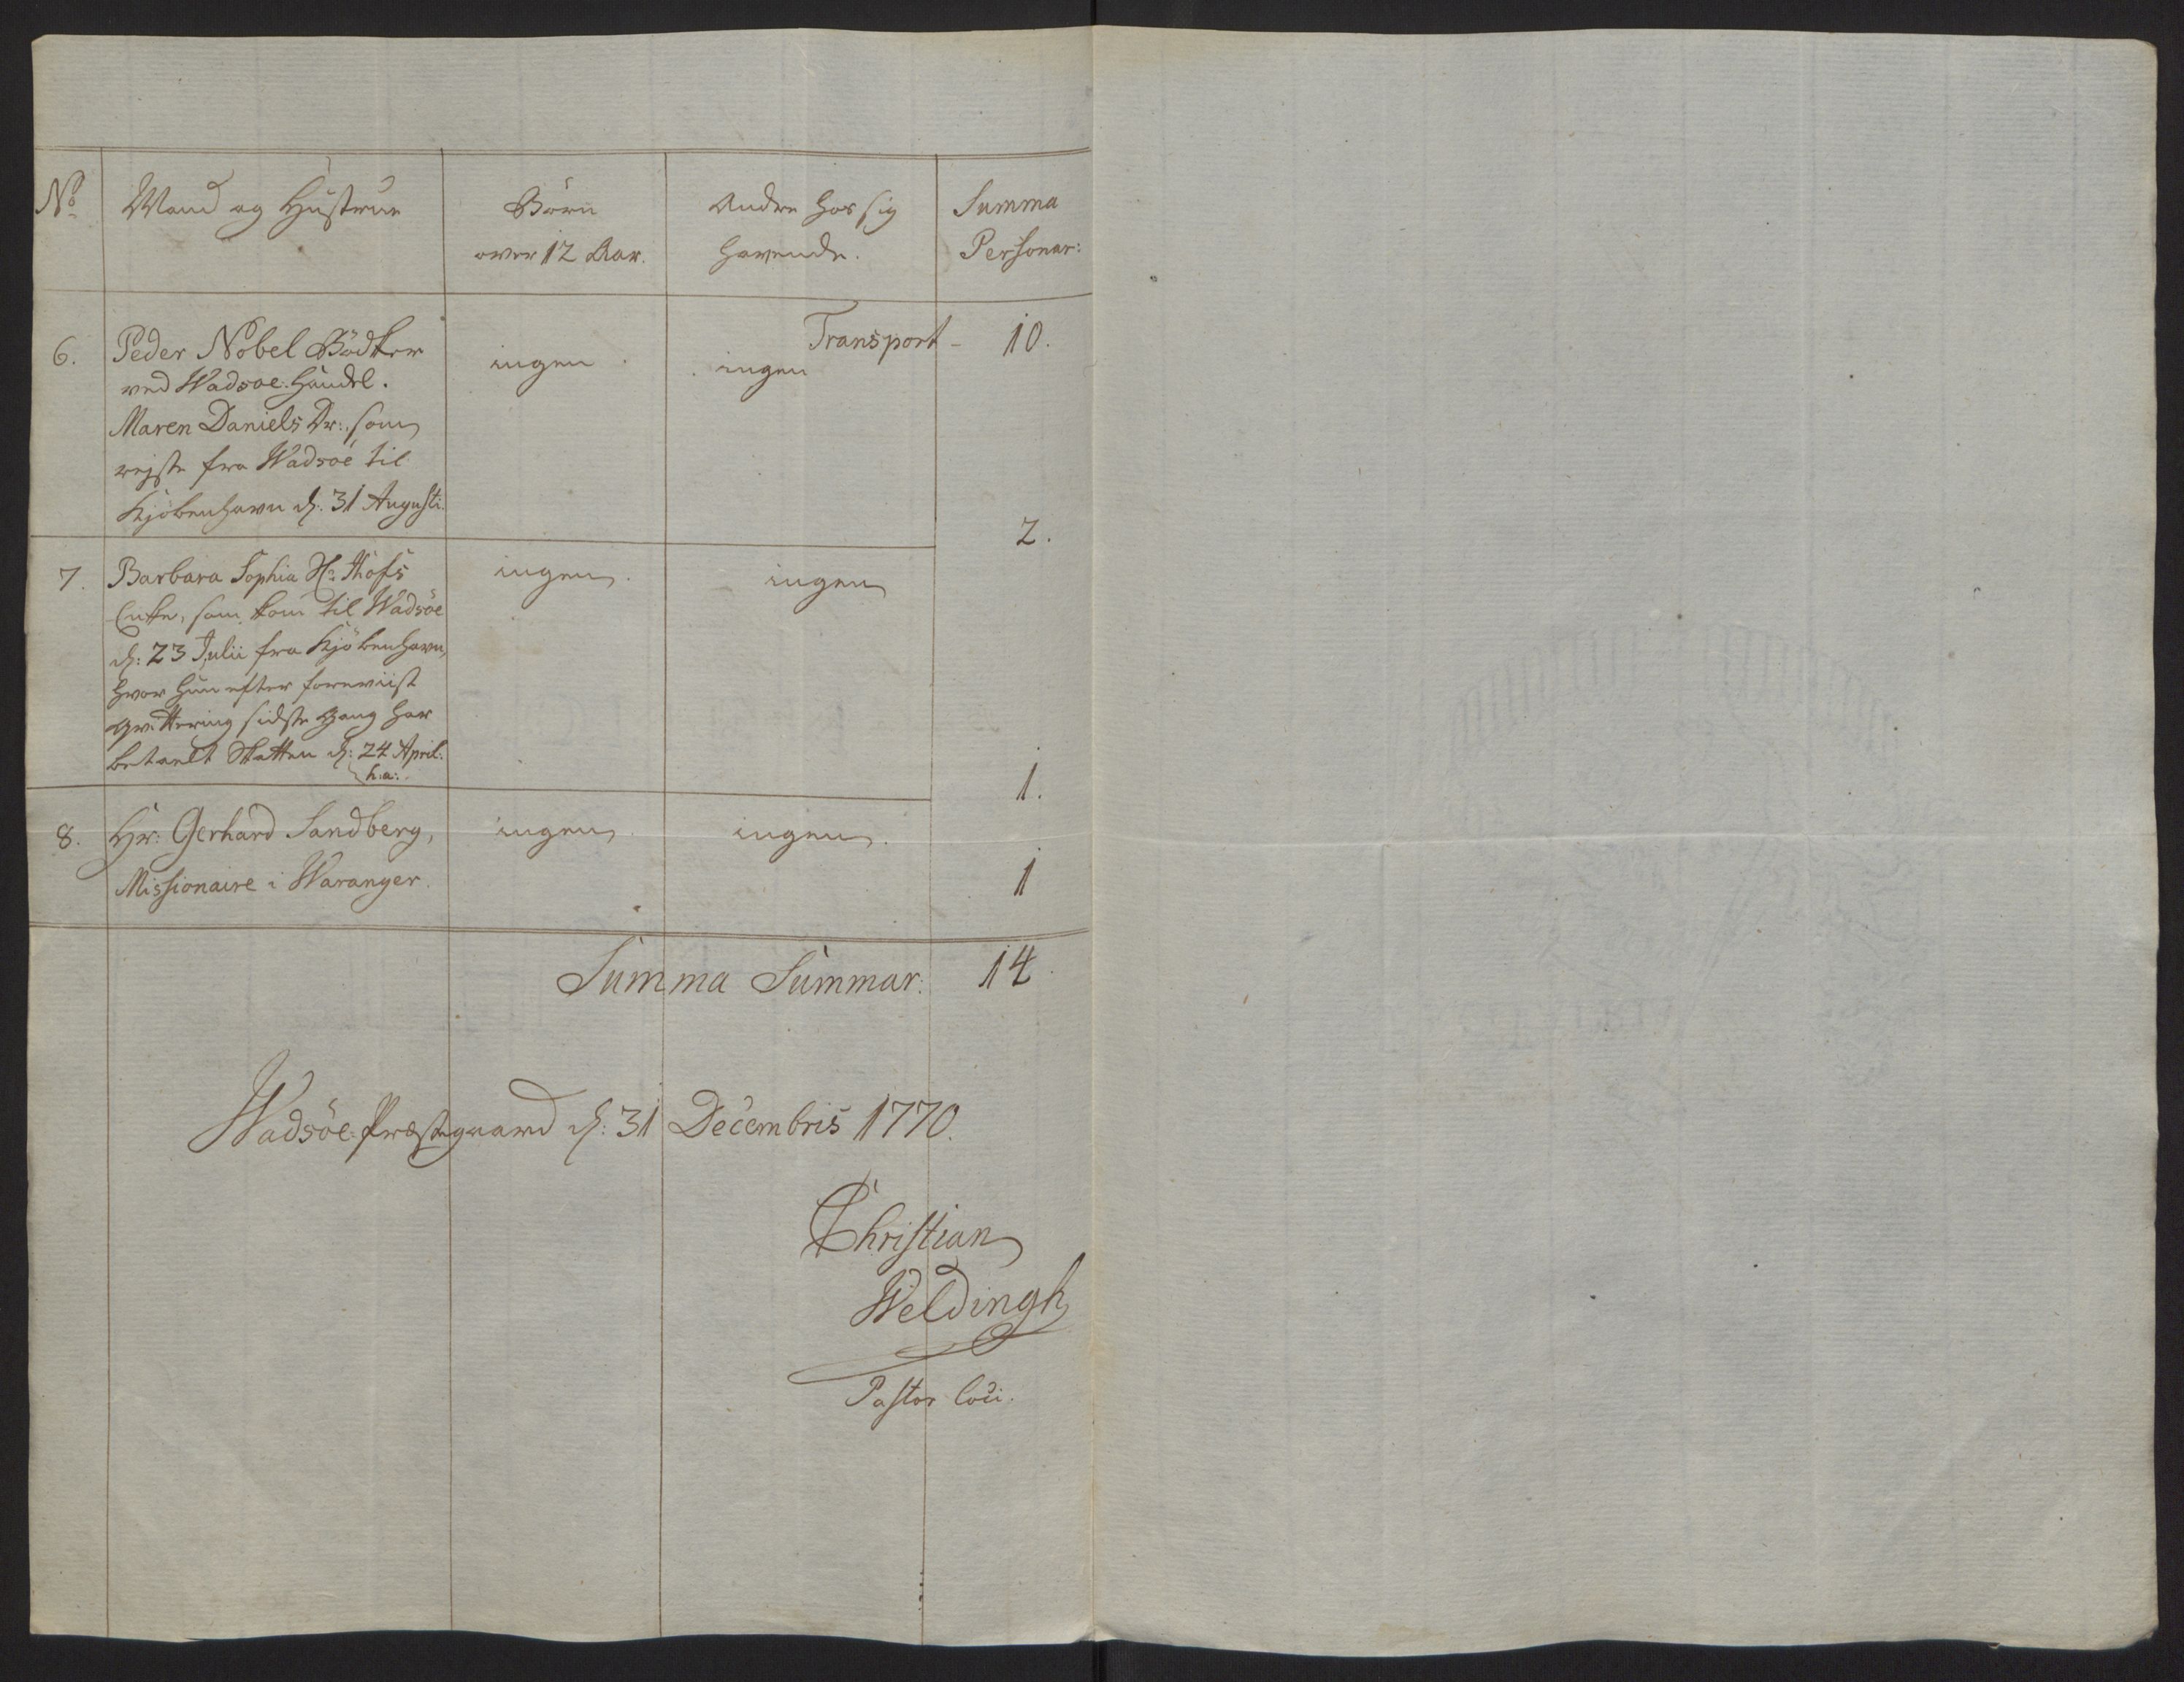 No Mand og Hustrue Börn over 12 Aar. Andre hos sig havende. Summa Personar:
Transport - 10.
6. Peder Nobel Bödker ingen . ingen
ved Wadsoe: Handel.
Maren Daniels Dr:, som
rejste fra Wadsöe til
Kjöbenhavn d: 31 Augusti.
2.
7. Barbara Sophia Hr: ingen. ingen
Enke, som kom til Wadsöe
d: 23 Julii fra Kjöbenhavn,
hvor hun efter foreviist
Qvittering sidste Gang har
betaelt Skatten d: 24 April:
h:a:.
1.
8. Hr: Gerhard Sandberg, ingen. ingen.
Missionaire i Waranger.
1
Summa Summar: 14.
Wadsöe Præstegaard d: 31 Decembris 1770.
Christian
Weldingh
Pastor loci.